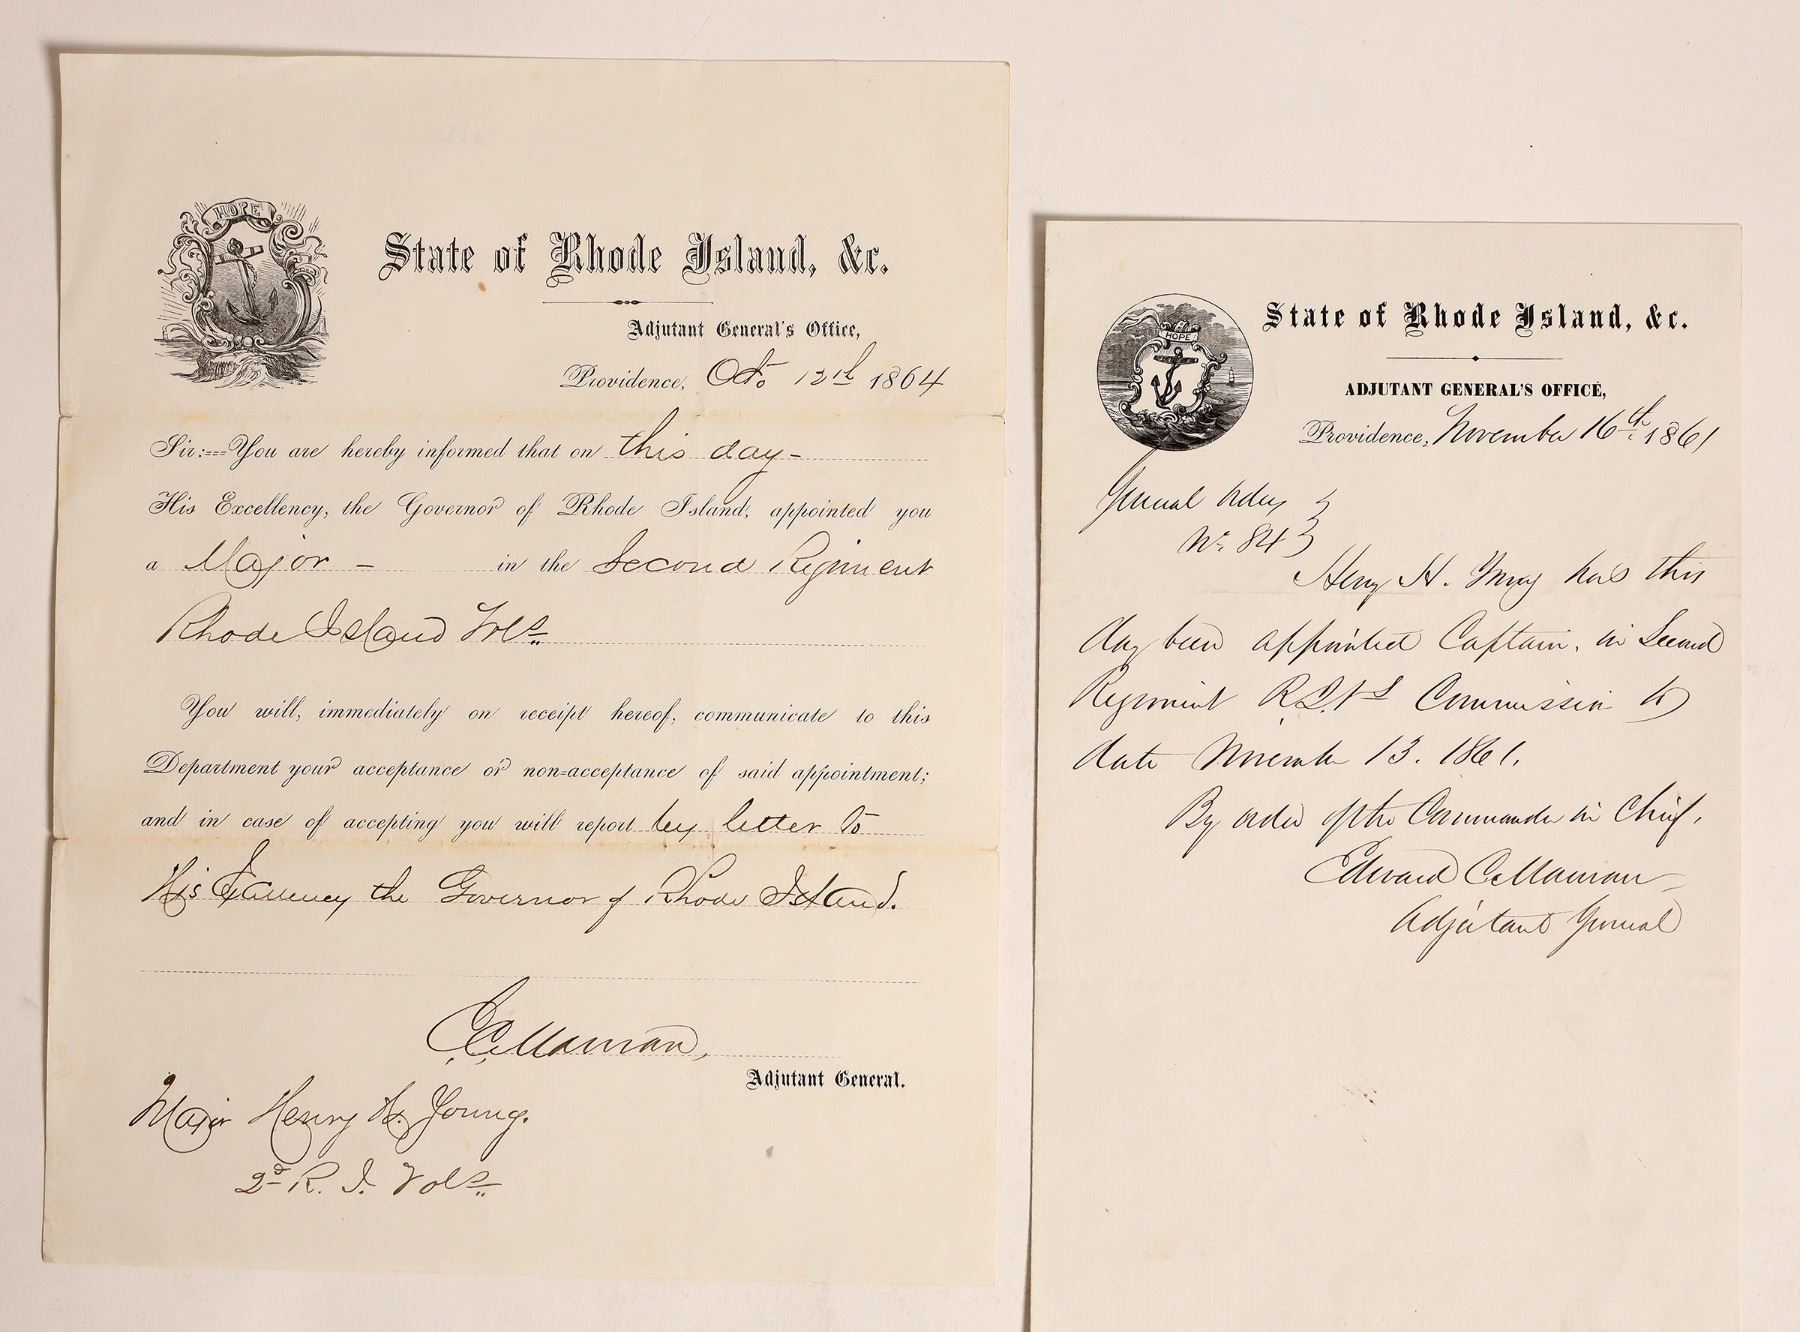 HOPE
State of Rhode Island, &c.
Adjutant General's Office,
Providence, Oct. 12th 1864
Sir:===You are hereby informed that on this day-
His Excellency, the Governor of Rhode Island, appointed you
a Major - in the Second Regiment
Rhode Island Vols.
You will, immediately on receipt hereof, communicate to this
Department your acceptance or non=acceptance of said appointment;
and in case of accepting you will report by letter to
His Excellency the Governor of Rhode Island.
E.C. Mauran,
Adjutant General.
Major Henry H. Young.
2d R. I. Vols.
HOPE
State of Rhode Island, &c.
ADJUTANT GENERAL'S OFFICE,
Providence, November 16th 1861
General Orders }
No. 84 }
Henry H. Young has this
day been appointed Captain, in Second
Regiment R.I.Vs Commission to
date November 13. 1861.
By order of the Commander in Chief,
Edward C. Mauran
Adjutant General